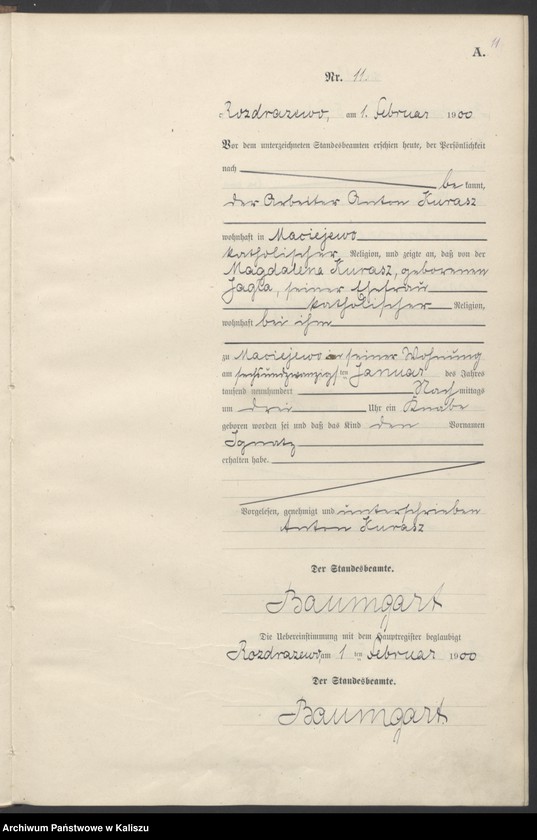 11
A.
Nr. 11.
Rozdrazewo, am 1. Februar 1900
Vor dem unterzeichneten Standesbeamten erschien heute, der Persönlichkeit
nach
be kannt,
der Arbeiter Anton Kurasz
wohnhaft in Maciejewo
katholischer Religion, und zeigte an, daß von der
Magdalena Kurasz, geborenen
Jagla, seiner Ehefrau
katholischer Religion,
wohnhaft bei ihm
zu Maciejewo in seiner Wohnung
am sechsundzwanzigsten Januar des Jahres
tausend neunhundert Nach mittags
um drei Uhr ein Knabe
geboren worden sei und daß das Kind den Vornamen
Ignatz
erhalten habe.
Vorgelesen, genehmigt und unterschrieben
Anton Kurasz
Der Standesbeamte.
Baumgart
Die Uebereinstimmung mit dem Hauptregister beglaubigt
Rozdrazewo am 1 ten Februar 1900
Der Standesbeamte.
Baumgart.
Archiwum Państwowe w Kaliszu